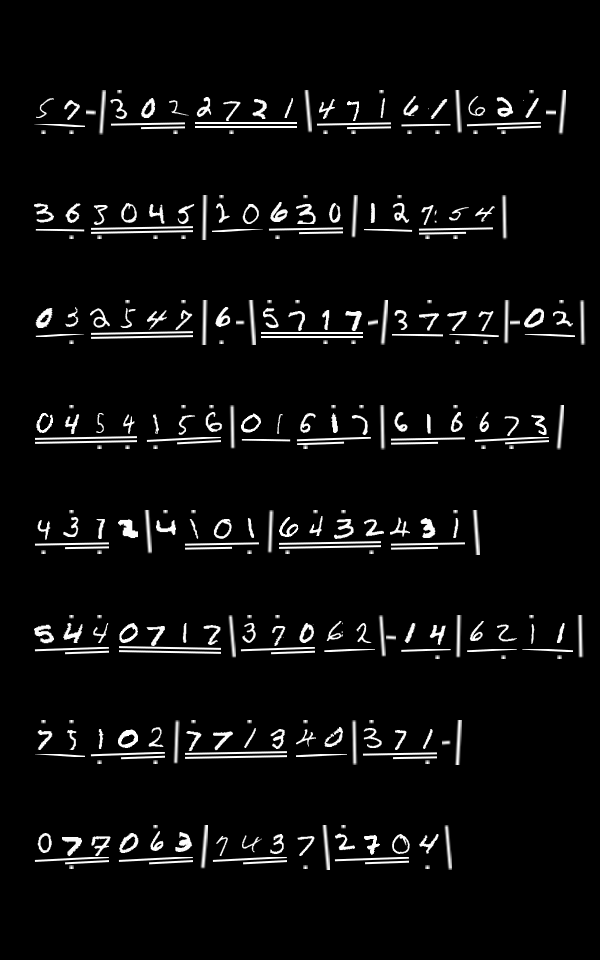 57-|3022721|47161|621-|
363045|20630|127154|
032547|6-|5717-|3777|-02|
0454156|01617|618673|
4372|4101|6432431|
5440712|37062|-14|6211|
75102|771340|371-|
077063|7437|2704|